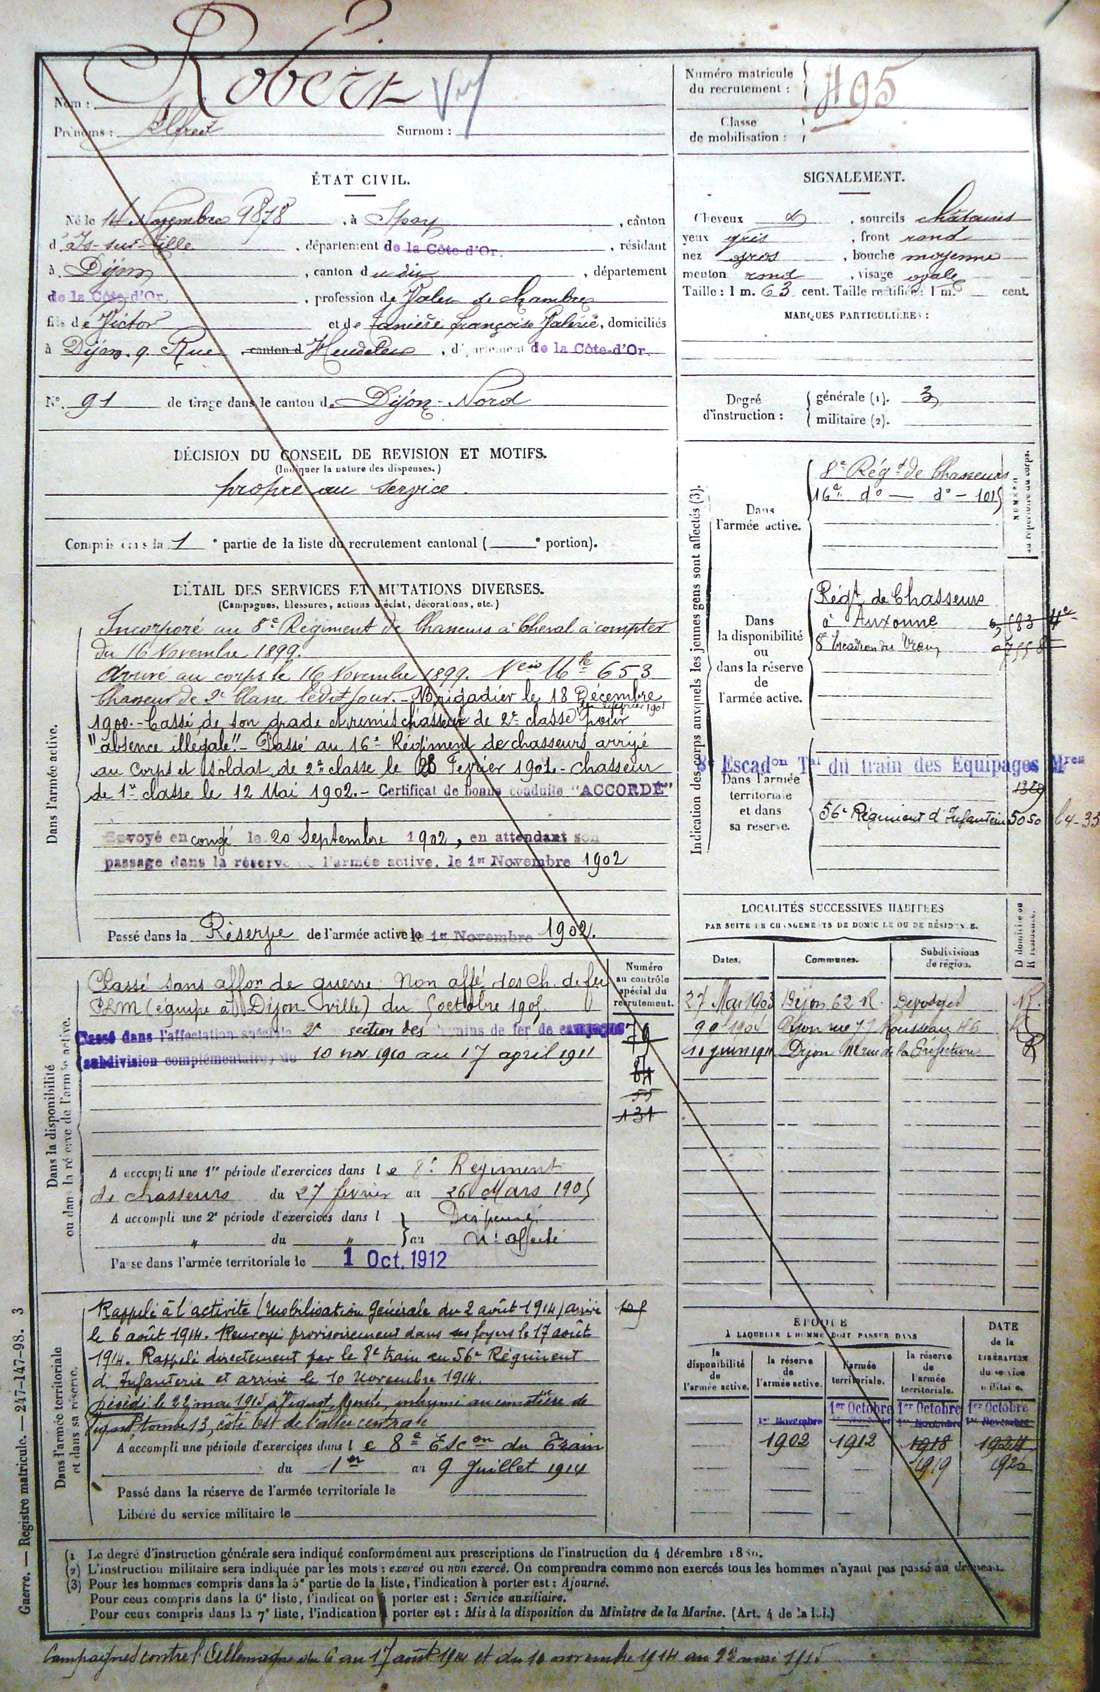 Robert
Nom :
Prénoms : Alfred Surnom :
Numéro matricule du recrutement : 495
Classe de mobilisation :
ÉTAT CIVIL.
Né le 14 Novembre 1878, à Spoy, canton
d'Is-sur-Tille, département de la Côte-d'Or, résidant
à Dijon, canton du dit, département
de la Côte-d'Or, profession de Valet de chambre
fils de Victor et de françoise Valérie, domiciliés
à Dijon, 9 Rue canton d, département de la Côte-d'Or.
N° 91 de tirage dans le canton de Dijon-Nord
SIGNALEMENT.
Cheveux, sourcils châtains
yeux gris, front rond
nez gros, bouche moyenne
menton rond, visage ovale
Taille : 1 m. 63 cent. Taille rectifiée : 1 m. cent.
MARQUES PARTICULIÈRES :
Degré d'instruction : générale (1). 3
militaire (2).
DÉCISION DU CONSEIL DE REVISION ET MOTIFS.
(Indiquer la nature des dispenses.)
propre au service.
Compris dans la 1e partie de la liste du recrutement cantonal ( e portion).
DÉTAIL DES SERVICES ET MUTATIONS DIVERSES.
(Campagnes, blessures, actions d'éclat, décorations, etc.)
Dans l'armée active.
Incorporé au 8e Régiment de Chasseurs à Cheval à compter
du 16 Novembre 1899.
Arrivé au corps le 16 Novembre 1899. 653
Chasseur de 2e Classe ledit jour. - Brigadier le 18 Décembre
1900 - Cassé de son grade et remis chasseur de 2e classe pour
"absence illégale". - Passé au 16e Régiment de chasseurs arrivé
au Corps et soldat de 2e classe le février 1901 - chasseur
de 1re classe le 12 Mai 1902. - Certificat de bonne conduite "ACCORDÉ"
Envoyé en congé le 20 Septembre 1902, en attendant son
passage dans la réserve de l'armée active, le 1er Novembre 1902
Passé dans la Réserve de l'armée active le 1er Novembre 1902.
Indication des corps auxquels les jeunes gens sont affectés (3).
NUMÉRO au répertoire du corps.
Dans l'armée active.
8e Régt de Chasseurs
16e do — do -
Dans la disponibilité ou dans la réserve de l'armée active.
Régt de Chasseurs
à Auxonne
8e Escadron du Train
8e Escadon Tal du train des Equipages Mres
Dans l'armée territoriale et dans sa réserve.
56e Régiment d'Infanterie 5050
LOCALITÉS SUCCESSIVES HABITÉES
PAR SUITE DE CHANGEMENTS DE DOMICILE OU DE RÉSIDENCE.
Dates. Communes. Subdivisions de région. Domicile ou Résidence.
27 Mai 1903 Dijon 62 R. R.
Dijon rue JJ Rousseau 46
Dijon rue de la Préfecture R
Dans la disponibilité ou dans la réserve de l'armée active.
Numéro au contrôle spécial du recrutement.
Classé sans affon de guerre. Non affé des Ch. de fer
PLM (équipe à Dijon ville) du octobre
Classé dans l'affectation spéciale 2e section des chemins de fer de campagne
(subdivision complémentaire) du 10 nov 1910 au 17 avril 1911
131
A accompli une 1re période d'exercices dans le 8e Régiment
de chasseurs du 27 février au 26 Mars 1905
A accompli une 2e période d'exercices dans l Dispensé
" du " au
Passé dans l'armée territoriale le 1 Oct. 1912
Dans l'armée territoriale et dans sa réserve.
Rappelé à l'activité (Mobilisation Générale du 2 août 1914) arrivé
le 6 août 1914. Renvoyé provisoirement dans ses foyers le 17 août
1914. Rappelé directement par le 8e train au 56e Régiment
d'Infanterie et arrivé le 10 novembre 1914.
Décédé le 22 mai 1915 à inhumé au cimetière de
tombe 13, côté Est de l'allée centrale
A accompli une période d'exercices dans le 8e Escon du Train
du 1er au 9 Juillet 1914
Passé dans la réserve de l'armée territoriale le
Libéré du service militaire le
ÉPOQUE À LAQUELLE L'HOMME DOIT PASSER DANS
la disponibilité de l'armée active. la réserve de l'armée active. l'armée territoriale. la réserve de l'armée territoriale. DATE de la LIBÉRATION du service militaire.
1er Novembre 1er Octobre 1er Octobre 1er Octobre
1902 1912 1918
1919
(1) Le degré d'instruction générale sera indiqué conformément aux prescriptions de l'instruction du 4 décembre 1889.
(2) L'instruction militaire sera indiquée par les mots : exercé ou non exercé. On comprendra comme non exercés tous les hommes n'ayant pas passé au drapeau.
(3) Pour les hommes compris dans la 5e partie de la liste, l'indication à porter est : Ajourné.
Pour ceux compris dans la 6e liste, l'indication à porter est : Service auxiliaire.
Pour ceux compris dans la 7e liste, l'indication à porter est : Mis à la disposition du Ministre de la Marine. (Art. 4 de la loi.)
Guerre. — Registre matricule. — 247-147-98. 3
Campagnes contre l'Allemagne du 6 au 17 août 1914 et du 10 novembre 1914 au 22 mai 1915